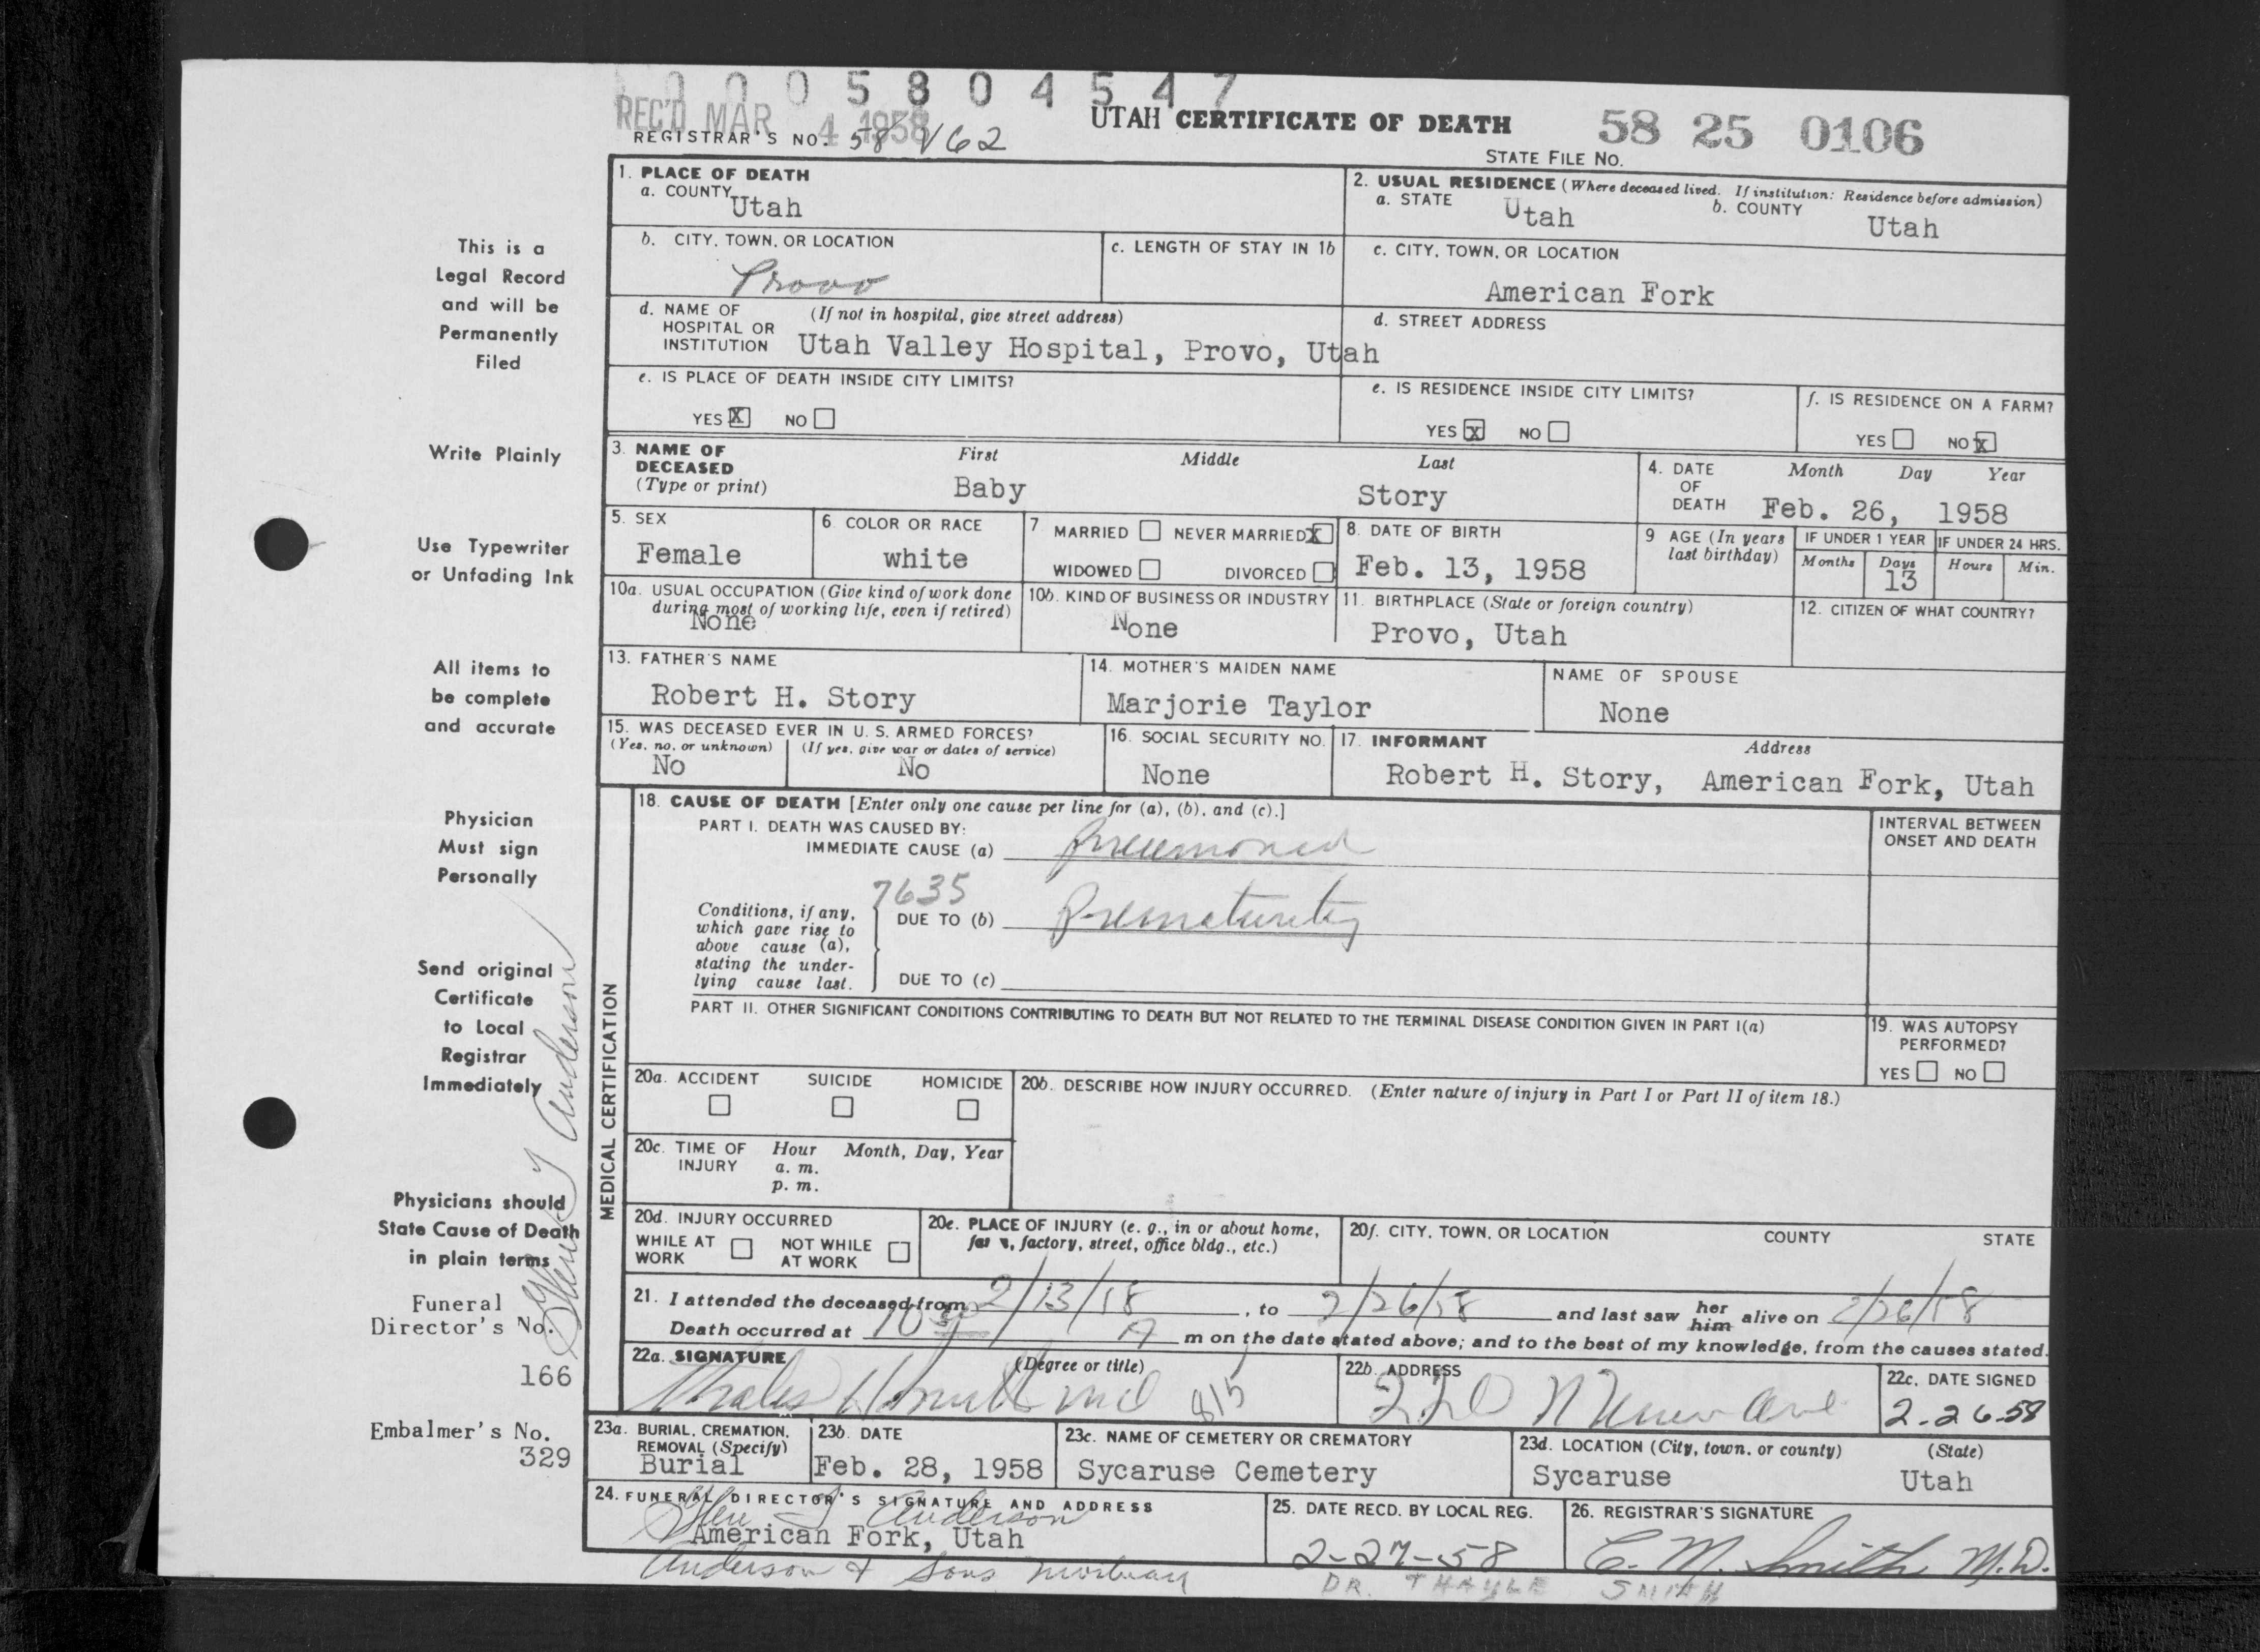 0005804547
REC'D MAR 4 1958
REGISTRAR'S NO. 58 V62
UTAH CERTIFICATE OF DEATH
58 25 0106
STATE FILE NO.
1. PLACE OF DEATH
a. COUNTY Utah
2. USUAL RESIDENCE (Where deceased lived. If institution: Residence before admission)
a. STATE Utah b. COUNTY Utah
b. CITY, TOWN, OR LOCATION Provo
c. LENGTH OF STAY IN 1b
c. CITY, TOWN, OR LOCATION
American Fork
d. NAME OF HOSPITAL OR INSTITUTION (If not in hospital, give street address)
Utah Valley Hospital, Provo, Utah
d. STREET ADDRESS
e. IS PLACE OF DEATH INSIDE CITY LIMITS?
YES X NO
e. IS RESIDENCE INSIDE CITY LIMITS?
YES X NO
f. IS RESIDENCE ON A FARM?
YES NO X
3. NAME OF DECEASED (Type or print)
First Middle Last
Baby Story
4. DATE OF DEATH Month Day Year
Feb. 26, 1958
5. SEX
Female
6. COLOR OR RACE
white
7. MARRIED NEVER MARRIED X
WIDOWED DIVORCED
8. DATE OF BIRTH
Feb. 13, 1958
9 AGE (In years last birthday)
IF UNDER 1 YEAR
Months Days
13
IF UNDER 24 HRS.
Hours Min.
10a. USUAL OCCUPATION (Give kind of work done during most of working life, even if retired)
None
10b. KIND OF BUSINESS OR INDUSTRY
None
11. BIRTHPLACE (State or foreign country)
Provo, Utah
12. CITIZEN OF WHAT COUNTRY?
13. FATHER'S NAME
Robert H. Story
14. MOTHER'S MAIDEN NAME
Marjorie Taylor
NAME OF SPOUSE
None
15. WAS DECEASED EVER IN U. S. ARMED FORCES?
(Yes, no, or unknown) (If yes, give war or dates of service)
No No
16. SOCIAL SECURITY NO.
None
17. INFORMANT Address
Robert H. Story, American Fork, Utah
MEDICAL CERTIFICATION
18. CAUSE OF DEATH [Enter only one cause per line for (a), (b), and (c).]
PART I. DEATH WAS CAUSED BY:
IMMEDIATE CAUSE (a) Pneumonia
INTERVAL BETWEEN ONSET AND DEATH
7635
Conditions, if any, which gave rise to above cause (a), stating the underlying cause last.
DUE TO (b) Prematurity
DUE TO (c)
PART II. OTHER SIGNIFICANT CONDITIONS CONTRIBUTING TO DEATH BUT NOT RELATED TO THE TERMINAL DISEASE CONDITION GIVEN IN PART I(a)
19. WAS AUTOPSY PERFORMED?
YES NO
20a. ACCIDENT SUICIDE HOMICIDE
20b. DESCRIBE HOW INJURY OCCURRED. (Enter nature of injury in Part I or Part II of item 18.)
20c. TIME OF INJURY Hour Month, Day, Year
a. m.
p. m.
20d. INJURY OCCURRED
WHILE AT WORK NOT WHILE AT WORK
20e. PLACE OF INJURY (e. g., in or about home, farm, factory, street, office bldg., etc.)
20f. CITY, TOWN, OR LOCATION COUNTY STATE
21. I attended the deceased from 2/13/58, to 2/26/58 and last saw her him alive on 2/26/58
Death occurred at 10 A m on the date stated above; and to the best of my knowledge, from the causes stated.
22a. SIGNATURE (Degree or title)
Smith MD
22b. ADDRESS
220 N Ave
22c. DATE SIGNED
2-26-58
23a. BURIAL, CREMATION, REMOVAL (Specify)
Burial
23b. DATE
Feb. 28, 1958
23c. NAME OF CEMETERY OR CREMATORY
Sycaruse Cemetery
23d. LOCATION (City, town, or county) (State)
Sycaruse Utah
24. FUNERAL DIRECTOR'S SIGNATURE AND ADDRESS
Anderson
American Fork, Utah
Anderson & Sons Mortuary
25. DATE RECD. BY LOCAL REG.
2-27-58
26. REGISTRAR'S SIGNATURE
C. M. Smith M.D.
DR. THAYLE SMITH
This is a
Legal Record
and will be
Permanently
Filed
Write Plainly
Use Typewriter
or Unfading Ink
All items to
be complete
and accurate
Physician
Must sign
Personally
Send original
Certificate
to Local
Registrar
Immediately
Physicians should
State Cause of Death
in plain terms
Funeral
Director's No.
166
Embalmer's No.
329
Anderson